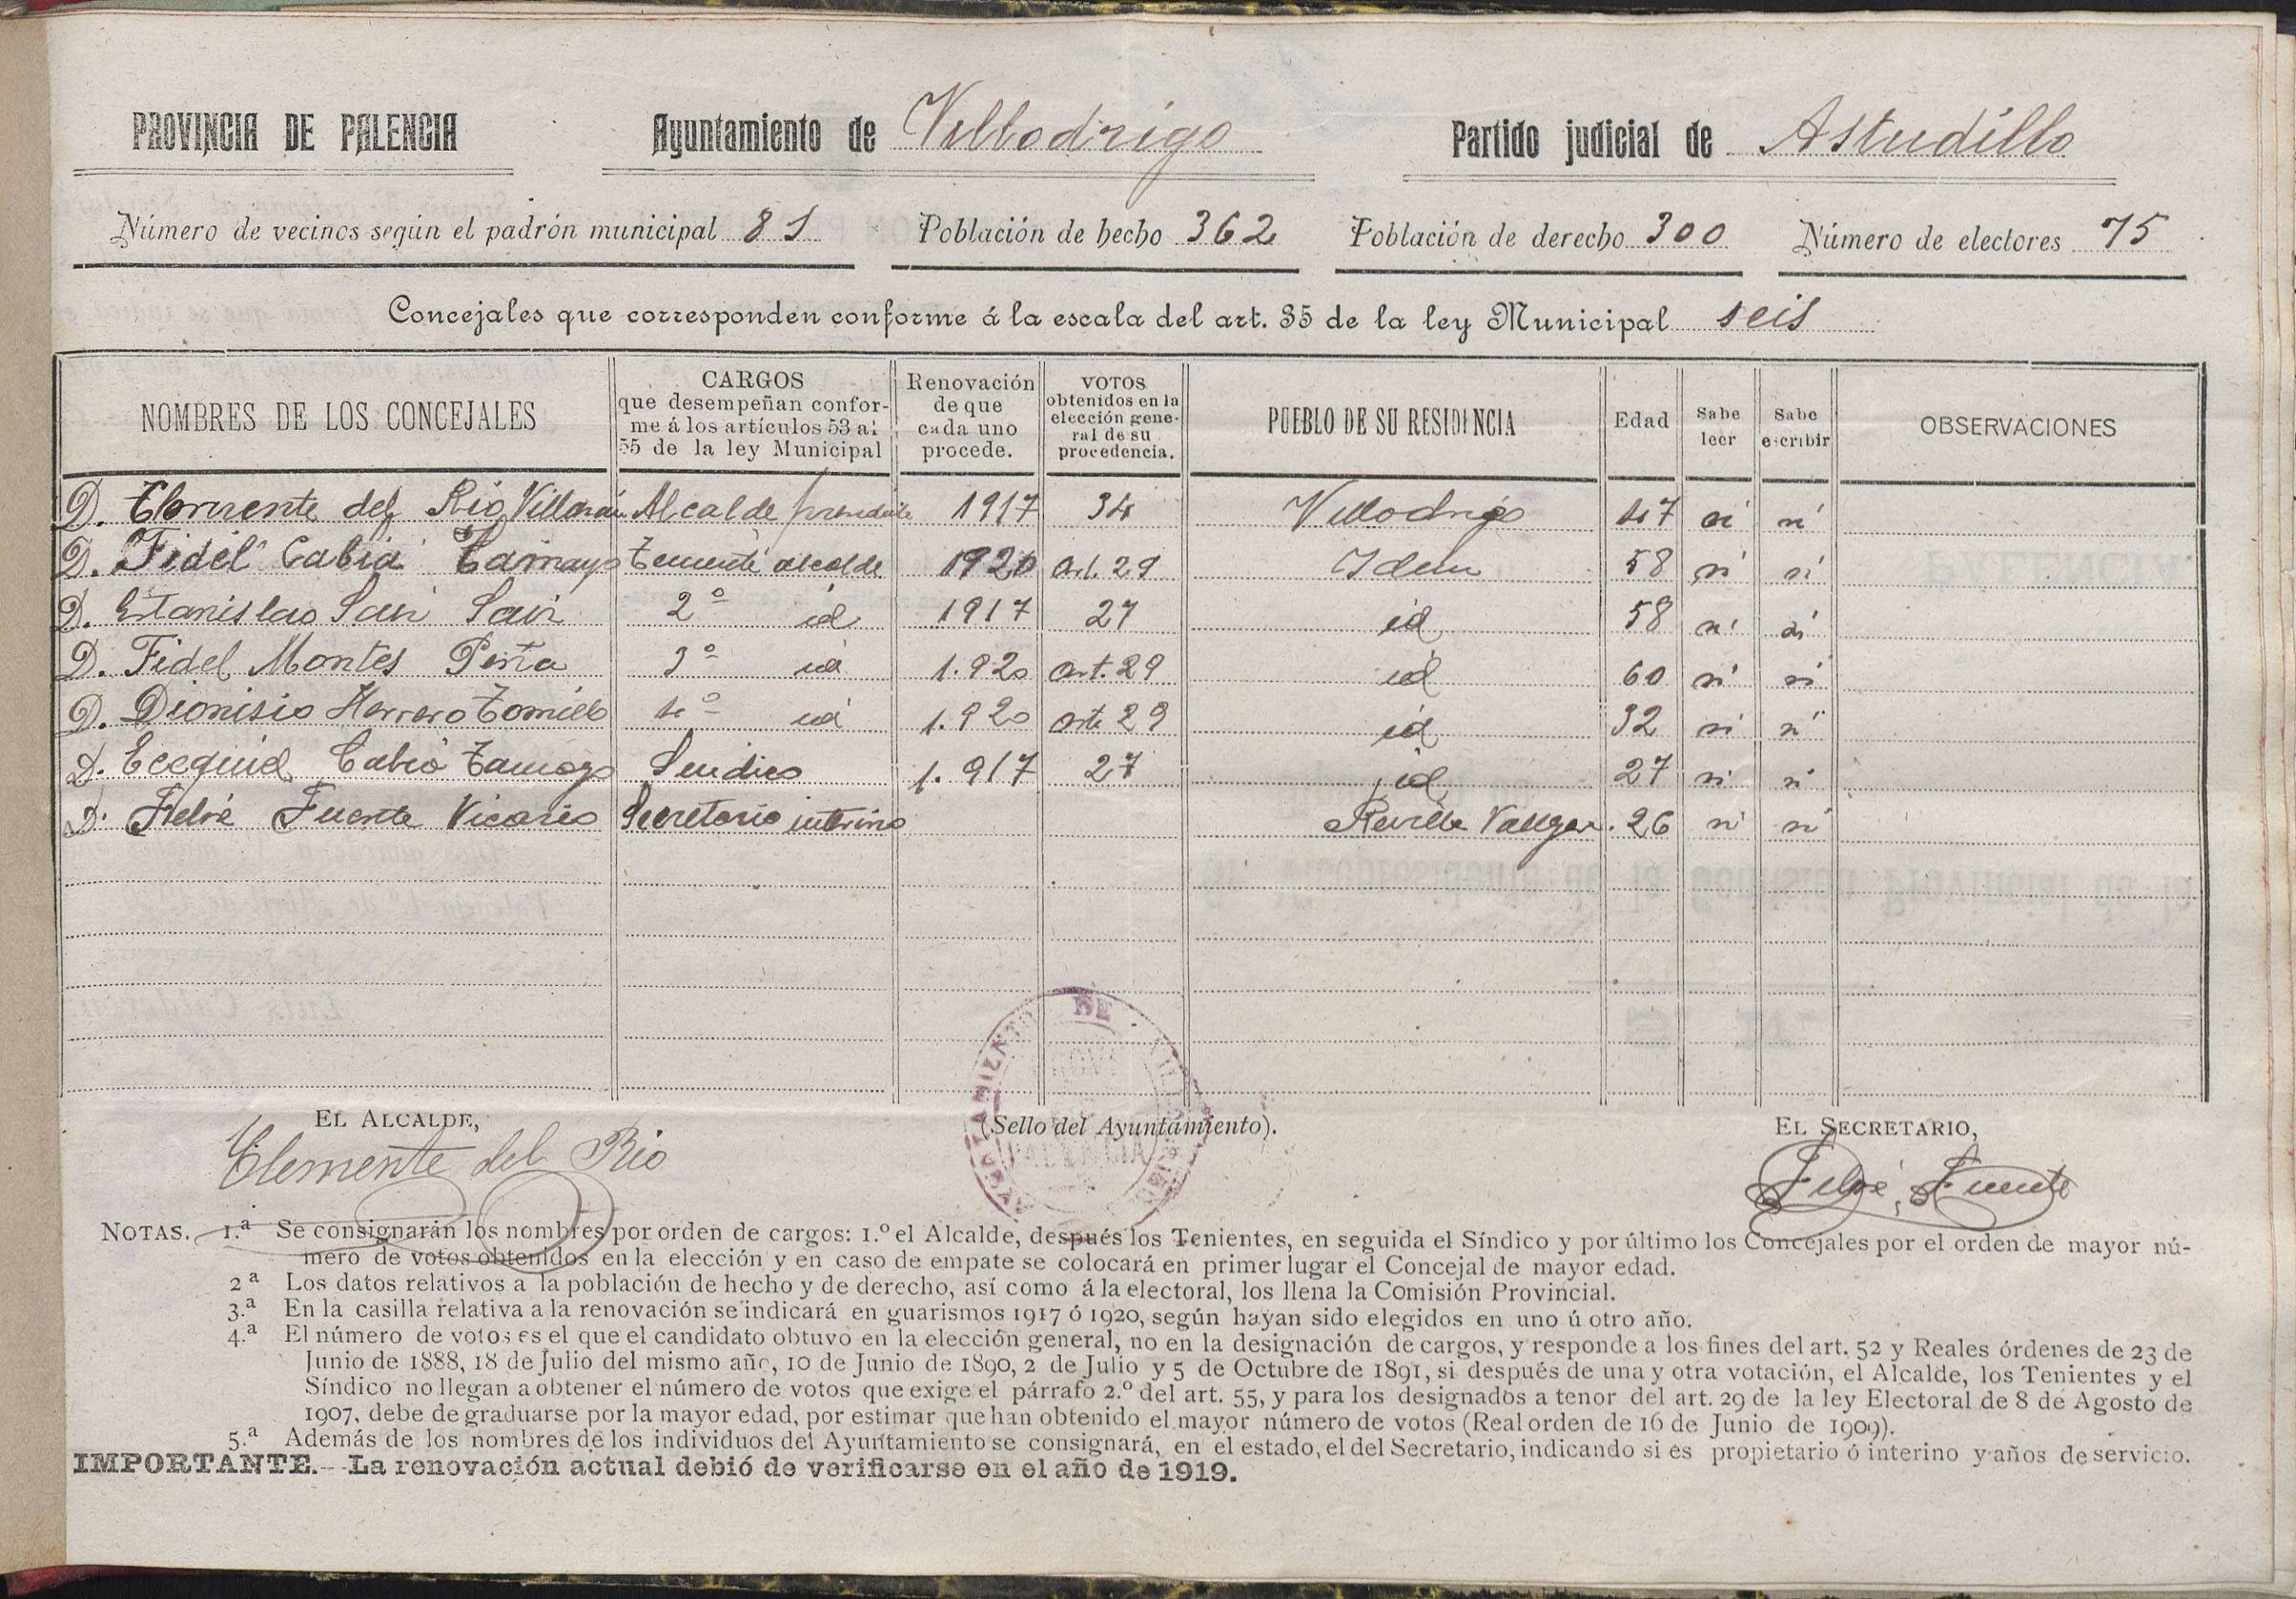 PROVINCIA DE PALENCIA Ayuntamiento de Villodrigo Partido judicial de Astudillo
Número de vecinos según el padrón municipal 81 Población de hecho 362 Población de derecho 300 Número de electores 75
Concejales que corresponden conforme á la escala del art. 35 de la ley Municipal seis
NOMBRES DE LOS CONCEJALES CARGOS que desempeñan conforme á los artículos 53 al 55 de la ley Municipal Renovación de que cada uno procede. VOTOS obtenidos en la elección general de su procedencia. PUEBLO DE SU RESIDENCIA Edad Sabe leer Sabe escribir OBSERVACIONES
D. Clemente del Rio Villarán Alcalde presidente 1917 34 Villodrigo 47 si si
D. Fidel Cabia Tamayo Teniente alcalde 1920 art. 29 Idem 58 si si
D. Estanislao 2º id 1917 27 id 58 si si
D. Fidel Montes Peña 3º id 1.920 art. 29 id 60 si si
D. Dionisio Herrero Tomillo 4º id 1.920 arto 29 id 32 si si
D. Ecequiel Cabia Tamayo Sindico 1.917 27 id 27 si si
D. Fuente Vicario Secretario interino Revilla Vallegera. 26 si si
AYUNTAMIENTO DE VILLODRIGO
PALENCIA
EL ALCALDE, (Sello del Ayuntamiento). EL SECRETARIO,
Clemente del Rio Fuente
NOTAS. 1.ª Se consignarán los nombres por orden de cargos: 1.º el Alcalde, después los Tenientes, en seguida el Síndico y por último los Concejales por el orden de mayor nú-
mero de votos obtenidos en la elección y en caso de empate se colocará en primer lugar el Concejal de mayor edad.
2ª Los datos relativos a la población de hecho y de derecho, así como á la electoral, los llena la Comisión Provincial.
3.ª En la casilla relativa a la renovación se indicará en guarismos 1917 ó 1920, según hayan sido elegidos en uno ú otro año.
4.ª El número de votos es el que el candidato obtuvo en la elección general, no en la designación de cargos, y responde a los fines del art. 52 y Reales órdenes de 23 de
Junio de 1888, 18 de Julio del mismo año, 10 de Junio de 1890, 2 de Julio y 5 de Octubre de 1891, si después de una y otra votación, el Alcalde, los Tenientes y el
Síndico no llegan a obtener el número de votos que exige el párrafo 2.º del art. 55, y para los designados a tenor del art. 29 de la ley Electoral de 8 de Agosto de
1907, debe de graduarse por la mayor edad, por estimar que han obtenido el mayor número de votos (Real orden de 16 de Junio de 1909).
5.ª Además de los nombres de los individuos del Ayuntamiento se consignará, en el estado, el del Secretario, indicando si es propietario ó interino y años de servicio.
IMPORTANTE.--La renovación actual debió de verificarse en el año de 1919.